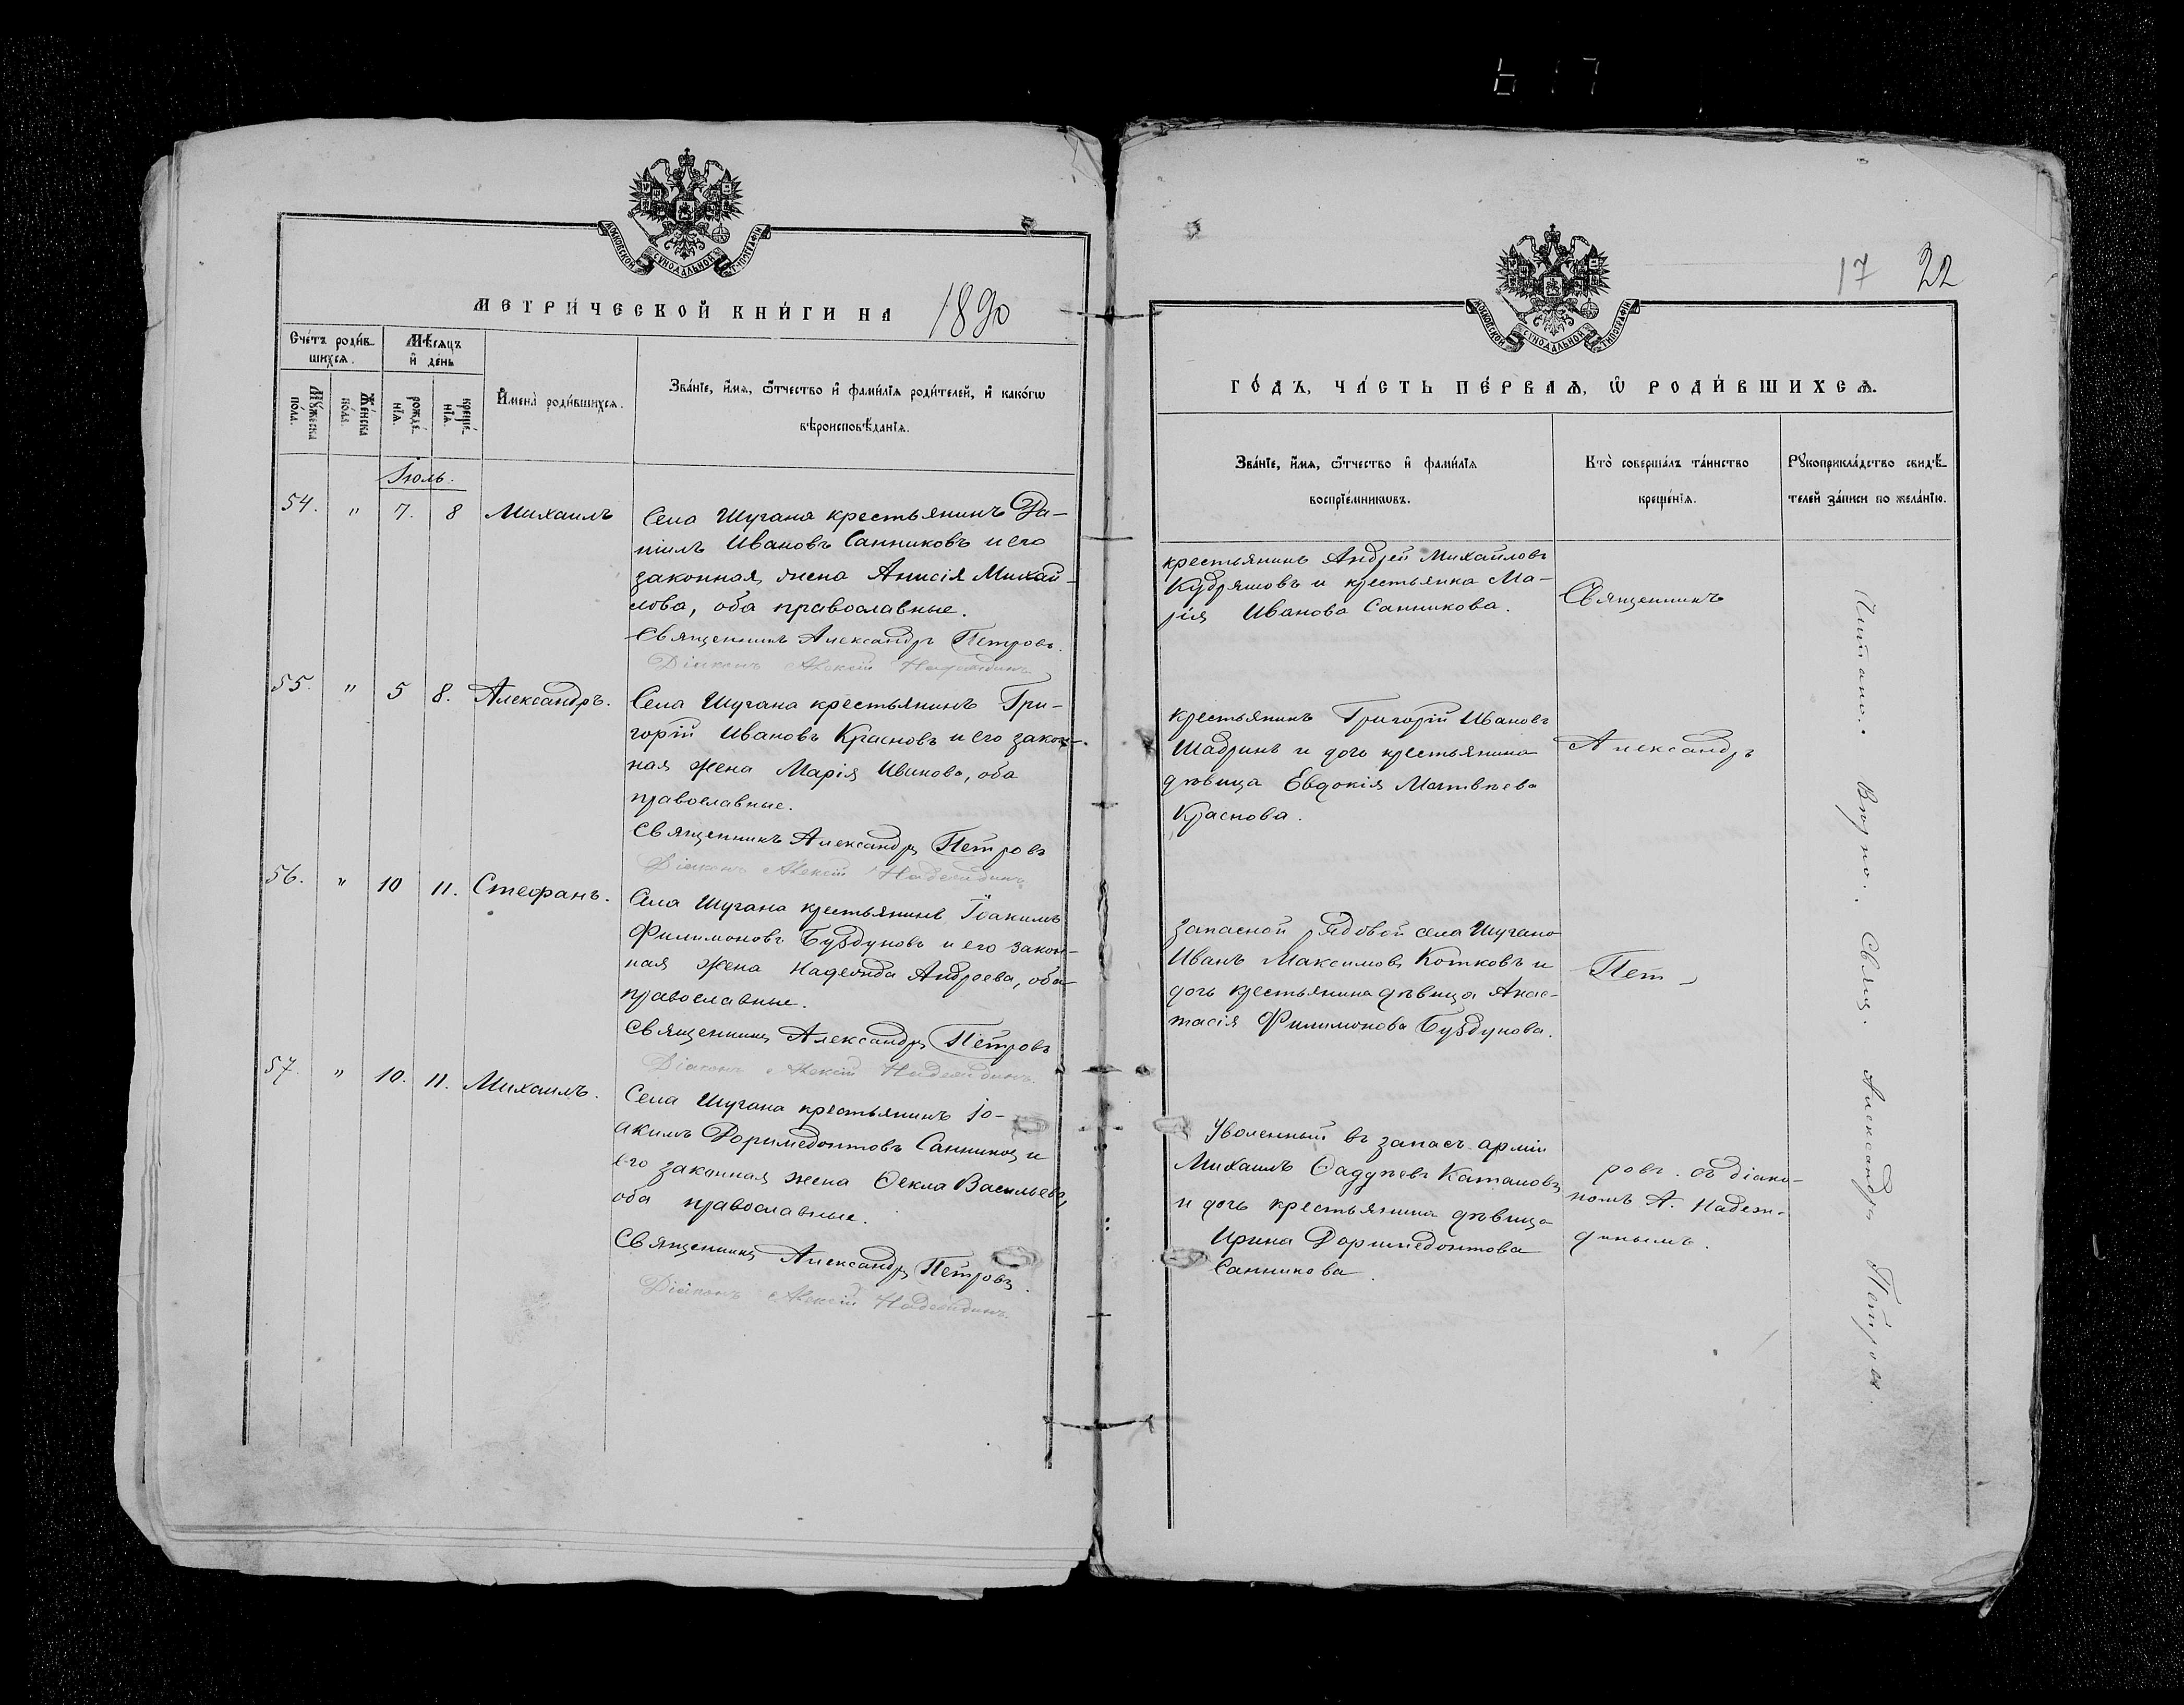 МОСКОВСКОЙ СѴНОДАЛЬНОЙ ТѴПОГРАФІИ
МЕТРИ́ЧЕСКОЙ КНИ́ГИ НА 1890
Сче́тъ роди́в-
шихсѧ.
Мѣ́сѧцъ
и҆ де́нь
Мꙋ́жеска
по́ла.
Же́нска
по́ла.
рожде́-
нїѧ.
креще́-
нїѧ.
И҆мена̀ роди́вшихсѧ.
Зва́нїе, и҆́мѧ, ѻ҆́тчество и҆ фами́лїѧ роди́телей, и҆ како́гѡ
вѣроисповѣ́данїѧ.
Іюль.
54. " 7. 8 Михаилъ
Села Шугана крестьянинъ Да-
ніилъ Ивановъ Санниковъ и его
законная жена Анисія Михай-
лова, оба православные.
Священникъ Александръ Петровъ.
Діаконъ Алексій Надеждинъ.
55. " 5 8. Александръ.
Села Шугана крестьянинъ Гри-
горій Ивановъ Красновъ и его закон-
ная жена Марія Иванова, оба
православные.
Священникъ Александръ Петровъ
Діаконъ Алексій Надеждинъ.
56. " 10 11. Стефанъ.
Села Шугана крестьянинъ Іоакимъ
Филимоновъ Бурдуновъ и его закон-
ная жена Надежда Андреева, оба
православные.
Священникъ Александръ Петровъ
Діаконъ Алексій Надеждинъ.
57. " 10. 11. Михаилъ.
Села Шугана крестьянинъ Іо-
акимъ Доримедонтовъ Санниковъ и
его законная жена Ѳекла Васильева,
оба православные.
Священникъ Александръ Петровъ.
Діаконъ Алексій Надеждинъ.
17 22
МОСКОВСКОЙ СѴНОДАЛЬНОЙ ТѴПОГРАФІИ
ГО́ДЪ, ЧА́СТЬ ПЕ́РВАѦ, Ѡ҆ РОДИ́ВШИХСѦ.
Зва́нїе, и҆́мѧ, ѻ҆́тчество и҆ фами́лїѧ
воспрїе́мникѡвъ.
Кто̀ соверша́лъ та́инство
креще́нїѧ.
Рꙋкоприкла́дство свидѣ́-
телей за́писи по жела́нїю.
крестьянинъ Андрей Михайловъ
Кудряшовъ и крестьянка Ма-
рія Иванова Санникова.
крестьянинъ Григорій Ивановъ
Шадринъ и дочь крестьянина
дѣвица Евдокія Матвѣева
Краснова.
Запасной рядовой села Шугана
Иванъ Максимовъ Котковъ и
дочь крестьянина дѣвица Анас-
тасія Филимонова Бурдунова.
Уволенный въ запасъ арміи
Михаилъ Ѳаддѣевъ Катановъ
и дочь крестьянина дѣвица
Ирина Доримедонтова
Санникова.
Священникъ
Александръ
Пет-
ровъ. съ діако-
номъ А. Надеж-
динымъ.
Читано. Вѣрно. Свящ. Александръ Петровъ.